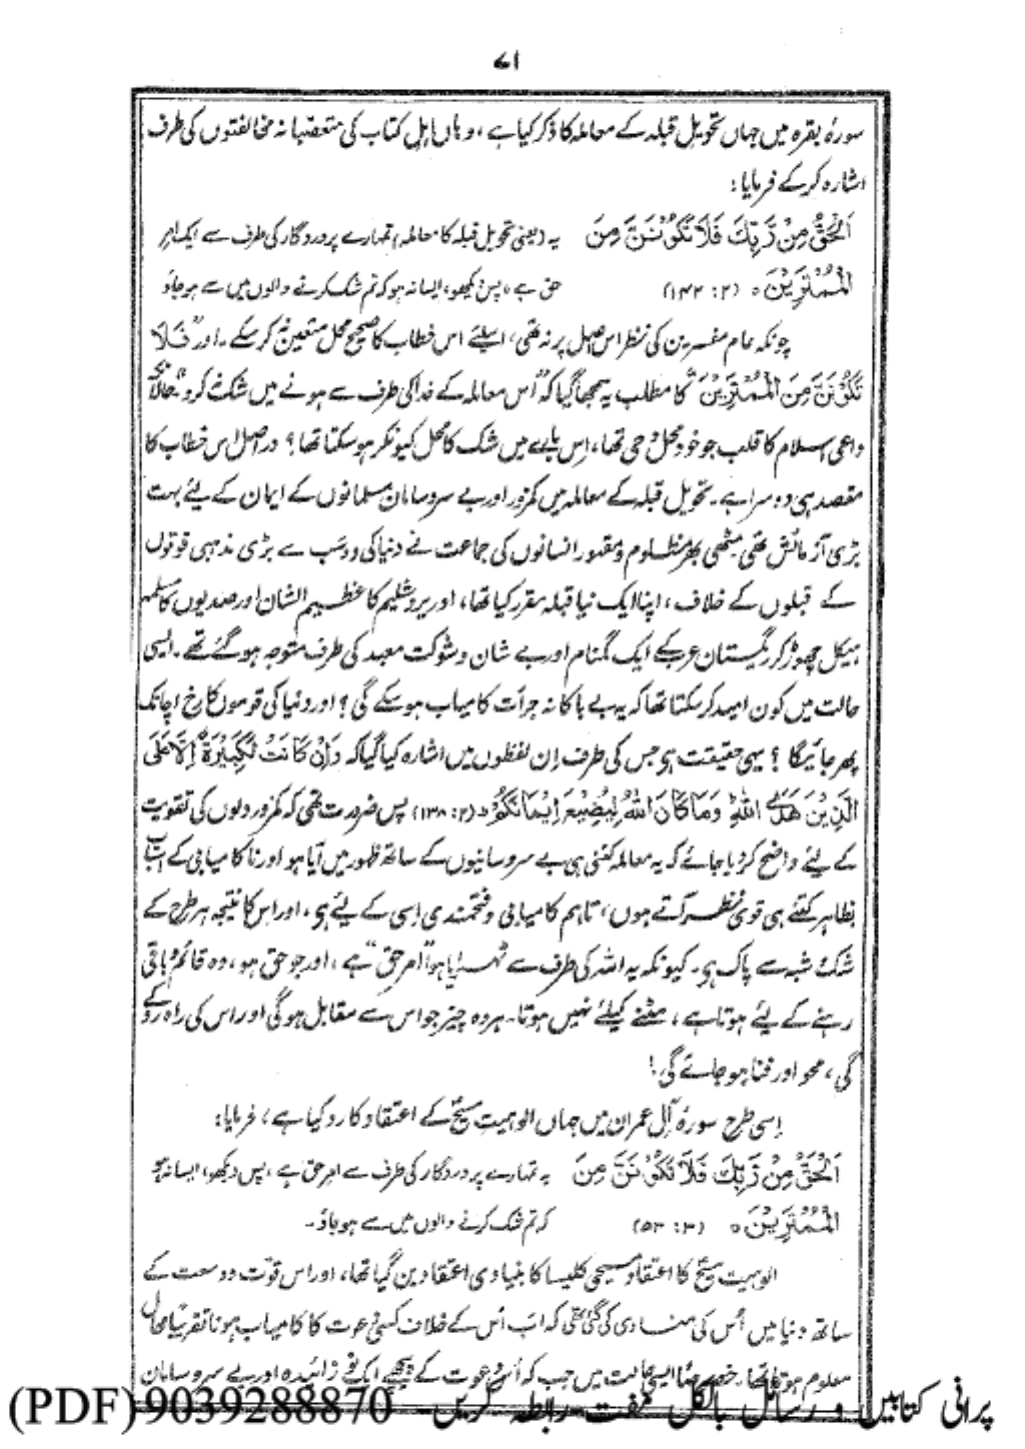 ۷۱
سورۂ بقرہ میں جہاں تحویل قبلہ کے معاملہ کا ذکر کیا ہے، وہاں اہل کتاب کی متعصبانہ مخالفتوں کی طرف
اشارہ کر کے فرمایا:
اَلْحَقُّ مِنْ رَّبِّكَ فَلَا تَكُوْنَنَّ مِنَ یہ (یعنی تحویل قبلہ کا معاملہ) تمہارے پروردگار کی طرف سے ایک امر
الْمُمْتَرِيْنَ ه (۲: ۱۴۲) حق ہے، پس دیکھو، ایسا نہ ہو کہ تم شک کرنے والوں میں سے ہو جاؤ
چونکہ عام مفسرین کی نظر اس اصل پر نہ تھی، اسلئے اس خطاب کا صحیح محل متعین نہ کر سکے۔ اور "فَلَا
تَكُوْنَنَّ مِنَ الْمُمْتَرِيْنَ" کا مطلب یہ سمجھا گیا کہ "اس معاملہ کے خدا کی طرف سے ہونے میں شک نہ کرو" حالانکہ
داعی اسلام کا قلب جو خود محل وحی تھا، اس بارے میں شک کا محل کیونکر ہو سکتا تھا؟ دراصل اس خطاب کا
مقصد ہی دوسرا ہے۔ تحویل قبلہ کے معاملہ میں کمزور اور بے سروسامان مسلمانوں کے ایمان کے لیے بہت
بڑی آزمائش تھی مٹھی بھر مظلوم و مقہور انسانوں کی جماعت نے دنیا کی دو سب سے بڑی مذہبی قوتوں
کے قبلوں کے خلاف، اپنا ایک نیا قبلہ مقرر کیا تھا، اور یروشلیم کا عظیم الشان اور صدیوں کا مسلمہ
ہیکل چھوڑ کر ریگستان عرب کے ایک گمنام اور بے شان و شوکت معبد کی طرف متوجہ ہو گئے تھے۔ ایسی
حالت میں کون امید کر سکتا تھا کہ یہ بے باکانہ جرات کامیاب ہو سکے گی؟ اور دنیا کی قوموں کا رخ اچانک
پھر جائیگا؟ یہی حقیقت ہے جس کی طرف ان لفظوں میں اشارہ کیا گیا کہ وَاِنْ كَانَتْ لَكَبِيْرَةً اِلَّا عَلَى
الَّذِيْنَ هَدَى اللّٰهُ وَمَا كَانَ اللّٰهُ لِيُضِيْعَ اِيْمَانَكُمْ (۲: ۱۳۸) پس ضرورت تھی کہ کمزور دلوں کی تقویت
کے لیے واضح کر دیا جائے کہ یہ معاملہ کتنی ہی بے سروسانیوں کے ساتھ ظہور میں آیا ہو اور ناکامیابی کے اسباب
بظاہر کتنے ہی قوی نظر آتے ہوں، تاہم کامیابی و فتحمندی اسی کے لیے ہے، اور اس کا نتیجہ ہر طرح کے
شک شبہ سے پاک ہے۔ کیونکہ یہ اللہ کی طرف سے ٹھہرایا ہوا "امر حق" ہے، اور جو حق ہو، وہ قائم و باقی
رہنے کے لیے ہوتا ہے، مٹنے کیلئے نہیں ہوتا۔ ہر وہ چیز جو اس سے مقابل ہوگی اور اس کی راہ روکے
گی، محو اور فنا ہو جائے گی!
اسی طرح سورۂ آل عمران میں جہاں الوہیت مسیح کے اعتقاد کا رد کیا ہے، فرمایا:
اَلْحَقُّ مِنْ رَّبِّكَ فَلَا تَكُوْنَنَّ مِنَ یہ تمہارے پروردگار کی طرف سے امر حق ہے، پس دیکھو، ایسا نہ ہو
الْمُمْتَرِيْنَ ه (۳: ۵۳) کہ تم شک کرنے والوں میں سے ہو جاؤ۔
الوہیت مسیح کا اعتقاد مسیحی کلیسا کا بنیادی اعتقاد بن گیا تھا، اور اس قوت و وسعت کے
ساتھ دنیا میں اس کی منادی کی گئی تھی کہ اب اس کے خلاف کسی دعوت کا کامیاب ہونا تقریباً محال
معلوم ہوتا تھا۔ خصوصاً ایسی حالت میں جب کہ اس دعوت کے پیچھے ایک نوزائیدہ اور بے سروسامان
پرانی کتابیں و رسائل بالکل مفت رابطہ کریں۔ 9039288870 (PDF)